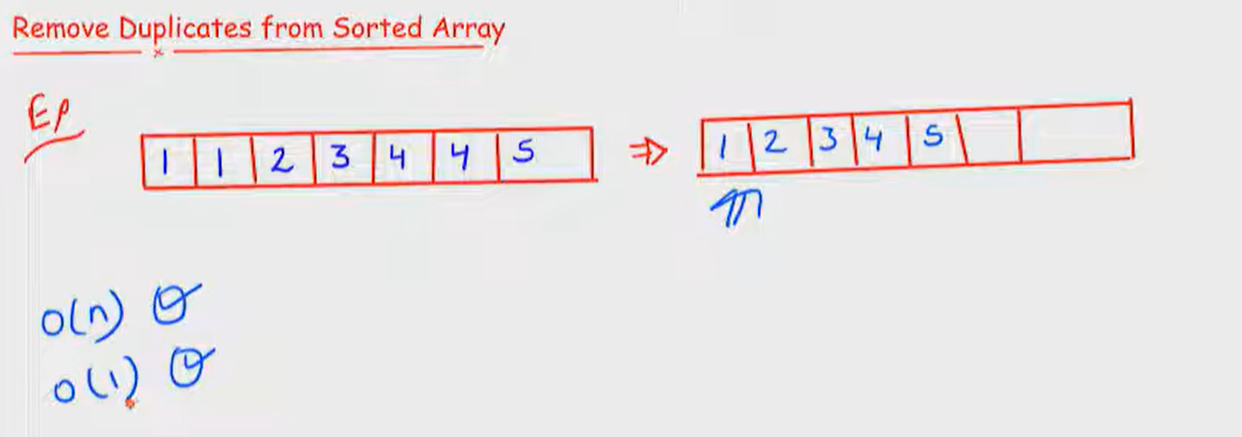 Remove Duplicates from Sorted Array
1 1 2 3 4 4 5 ⇒ 1 2 3 4 5
O(n)
O(1)